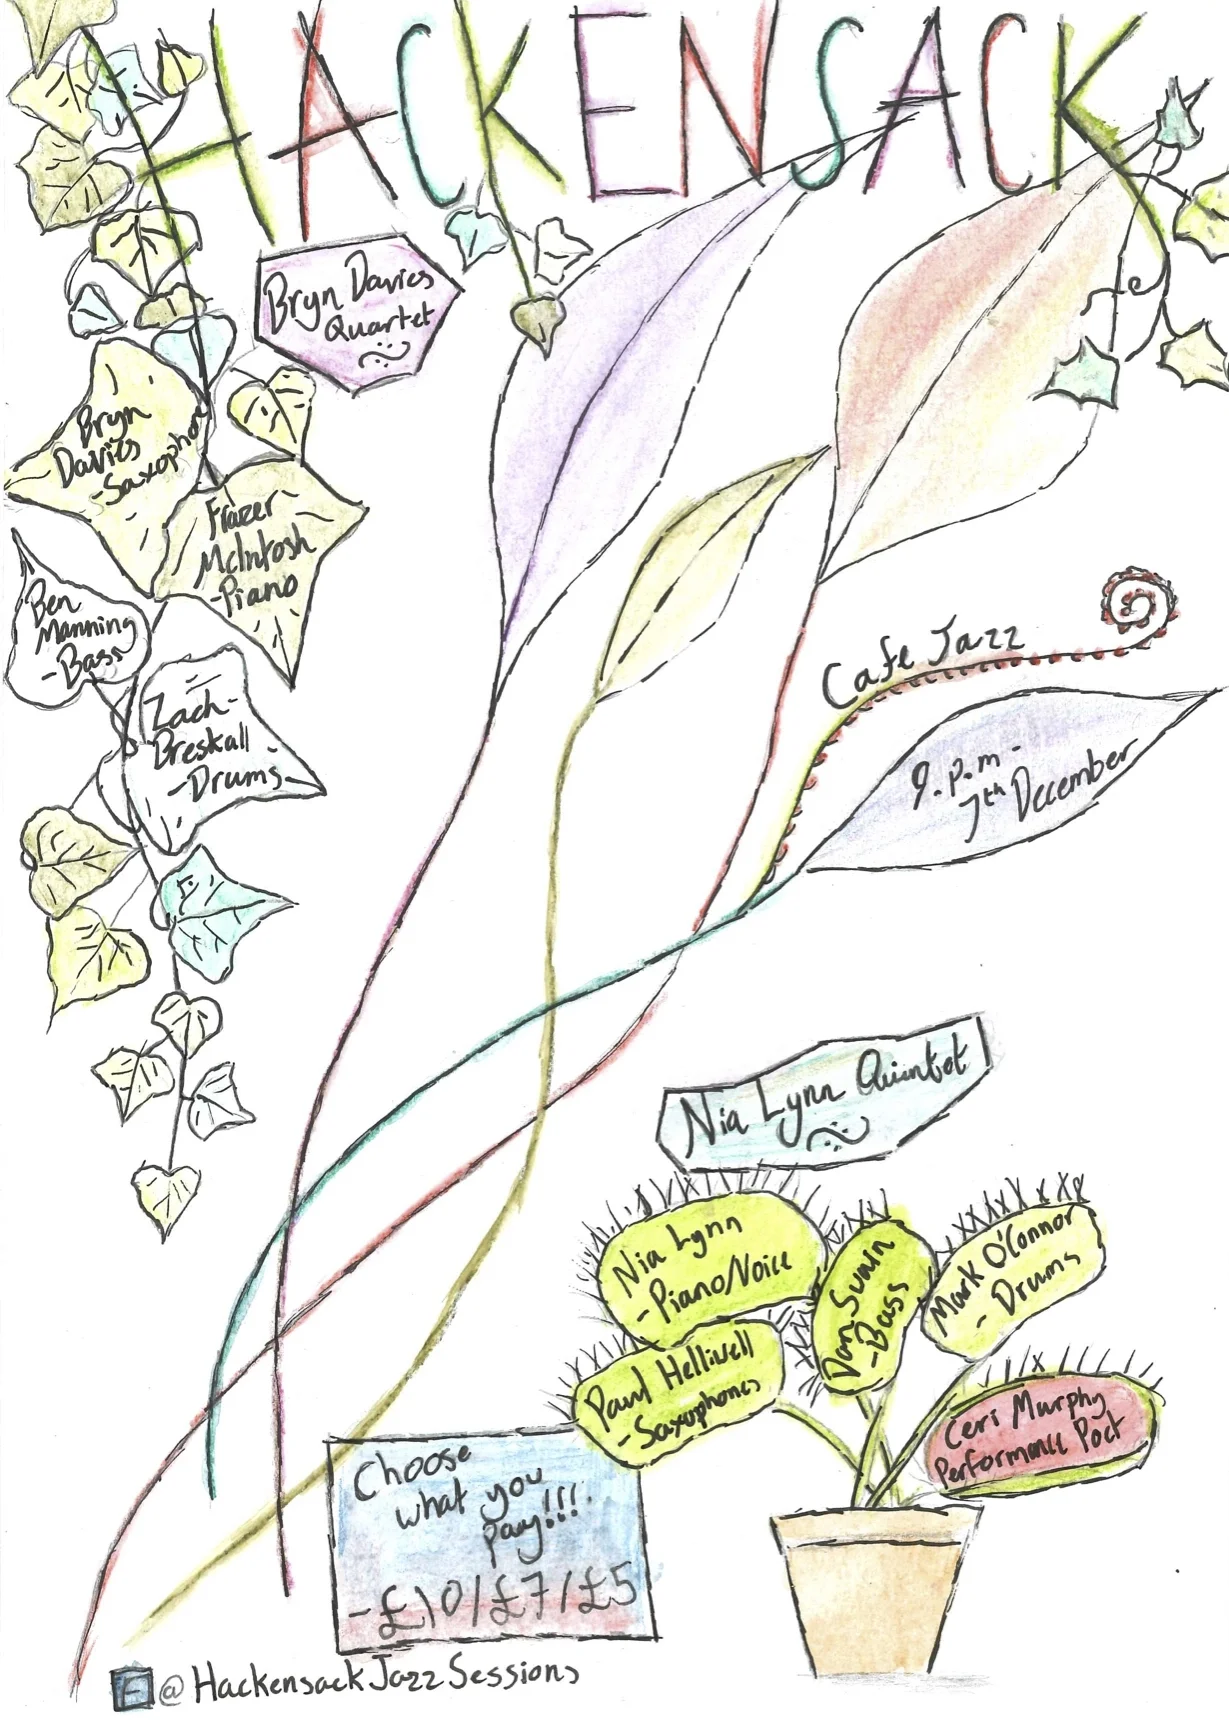 HACKENSACK
Bryn Davies
Quartet
Bryn
Davies
-Saxophon
Frazer
McIntosh
-Piano
Ben
Manning
-Bass
Zach-
Breskall
-Drums
Cafe Jazz
9.p.m.
7th December
Nia Lynn Quintet
Nia Lynn
-Piano/Voice
Dan Swain
-Bass
Mark O'Connor
- Drums
Paul Helliwell
-Saxophones
Ceri Murphy
Performance Poet
Choose
what you
pay!!!
-£10/£7/£5
@HackensackJazzSessions